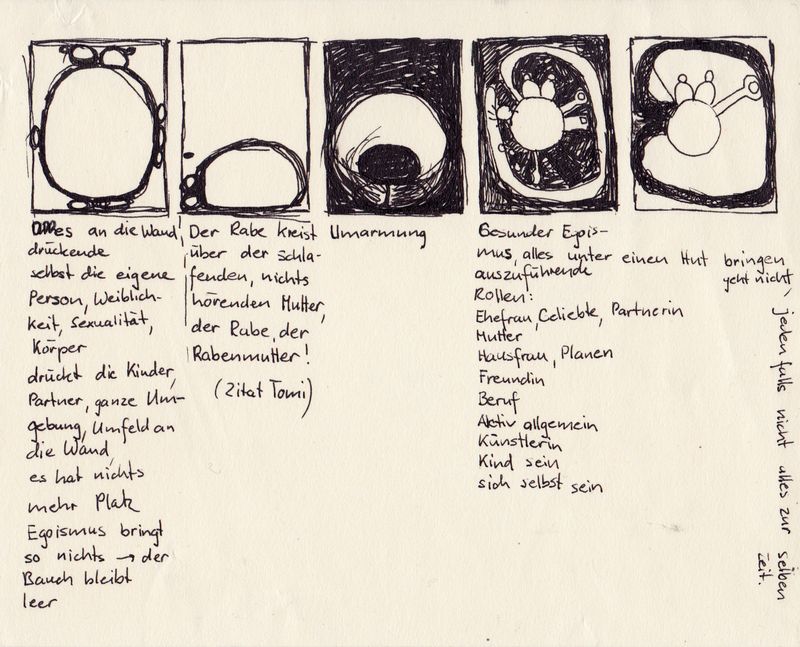 Alles an die Wand
drückende
selbst die eigene
Person, Weiblich-
keit, Sexualität,
Körper
drückt die Kinder,
Partner, ganze Um-
gebung, Umfeld an
die Wand,
es hat nichts
mehr Platz
Egoismus bringt
so nichts → der
Bauch bleibt
leer
Der Rabe kreist
über der schla-
fenden, nichts
hörenden Mutter,
der Rabe, der
Rabenmutter!
(Zitat Tomi)
Umarmung
Gesunder Egois-
mus, alles unter einen Hut bringen
geht nicht,
auszuführende
Rollen:
Ehefrau, Geliebte, Partnerin
Mutter
Hausfrau, Planen
Freundin
Beruf
Aktiv allgemein
Künstlerin
Kind sein
sich selbst sein
jedenfalls nicht alles zur selben
Zeit.